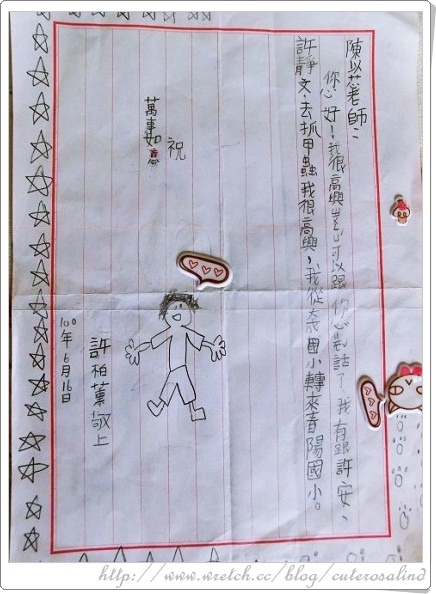 陳以老師：
您好！我很高興可以跟您對話了、我有跟許安、
許靜文、去抓甲蟲我很高興，我從國小轉來青陽國小。
祝
萬事如意
許柏薰敬上
100年6月16日
http://www.wretch.cc/blog/cuterosalind